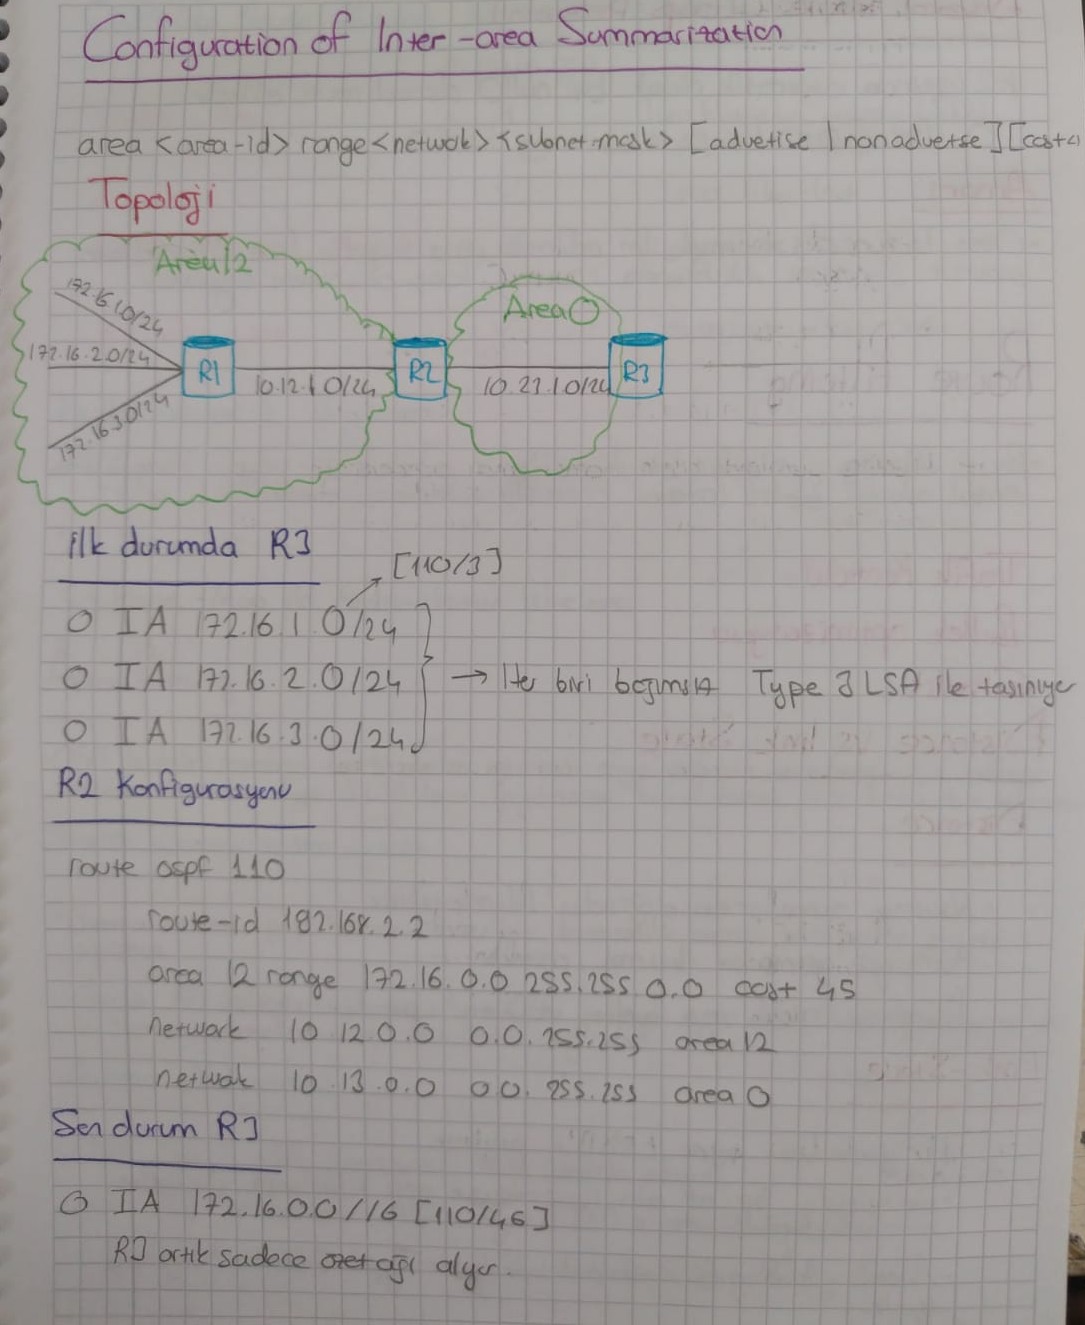 Configuration of Inter-area Summarization
area <area-id> range <netwok> <subnet-mask> [advetise | nonadvetse] [cost<
Topoloji
Area 12
Area 0
172.16.1.0/24
172.16.2.0/24
172.16.3.0/24
R1
10.12.1.0/24
R2
10.23.1.0/24
R3
ilk durumda R3
[110/3]
O IA 172.16.1.0/24
O IA 172.16.2.0/24 → Her biri bağımsız Type 3 LSA ile taşınıyor
O IA 172.16.3.0/24
R2 Konfigurasyonu
route ospf 110
route-id 192.168.2.2
area 12 range 172.16.0.0 255.255.0.0 cost 45
network 10.12.0.0 0.0.255.255 area 12
netwok 10.13.0.0 0.0.255.255 area 0
Son durum R3
O IA 172.16.0.0/16 [110/46]
R3 artık sadece özet ağı alıyor.